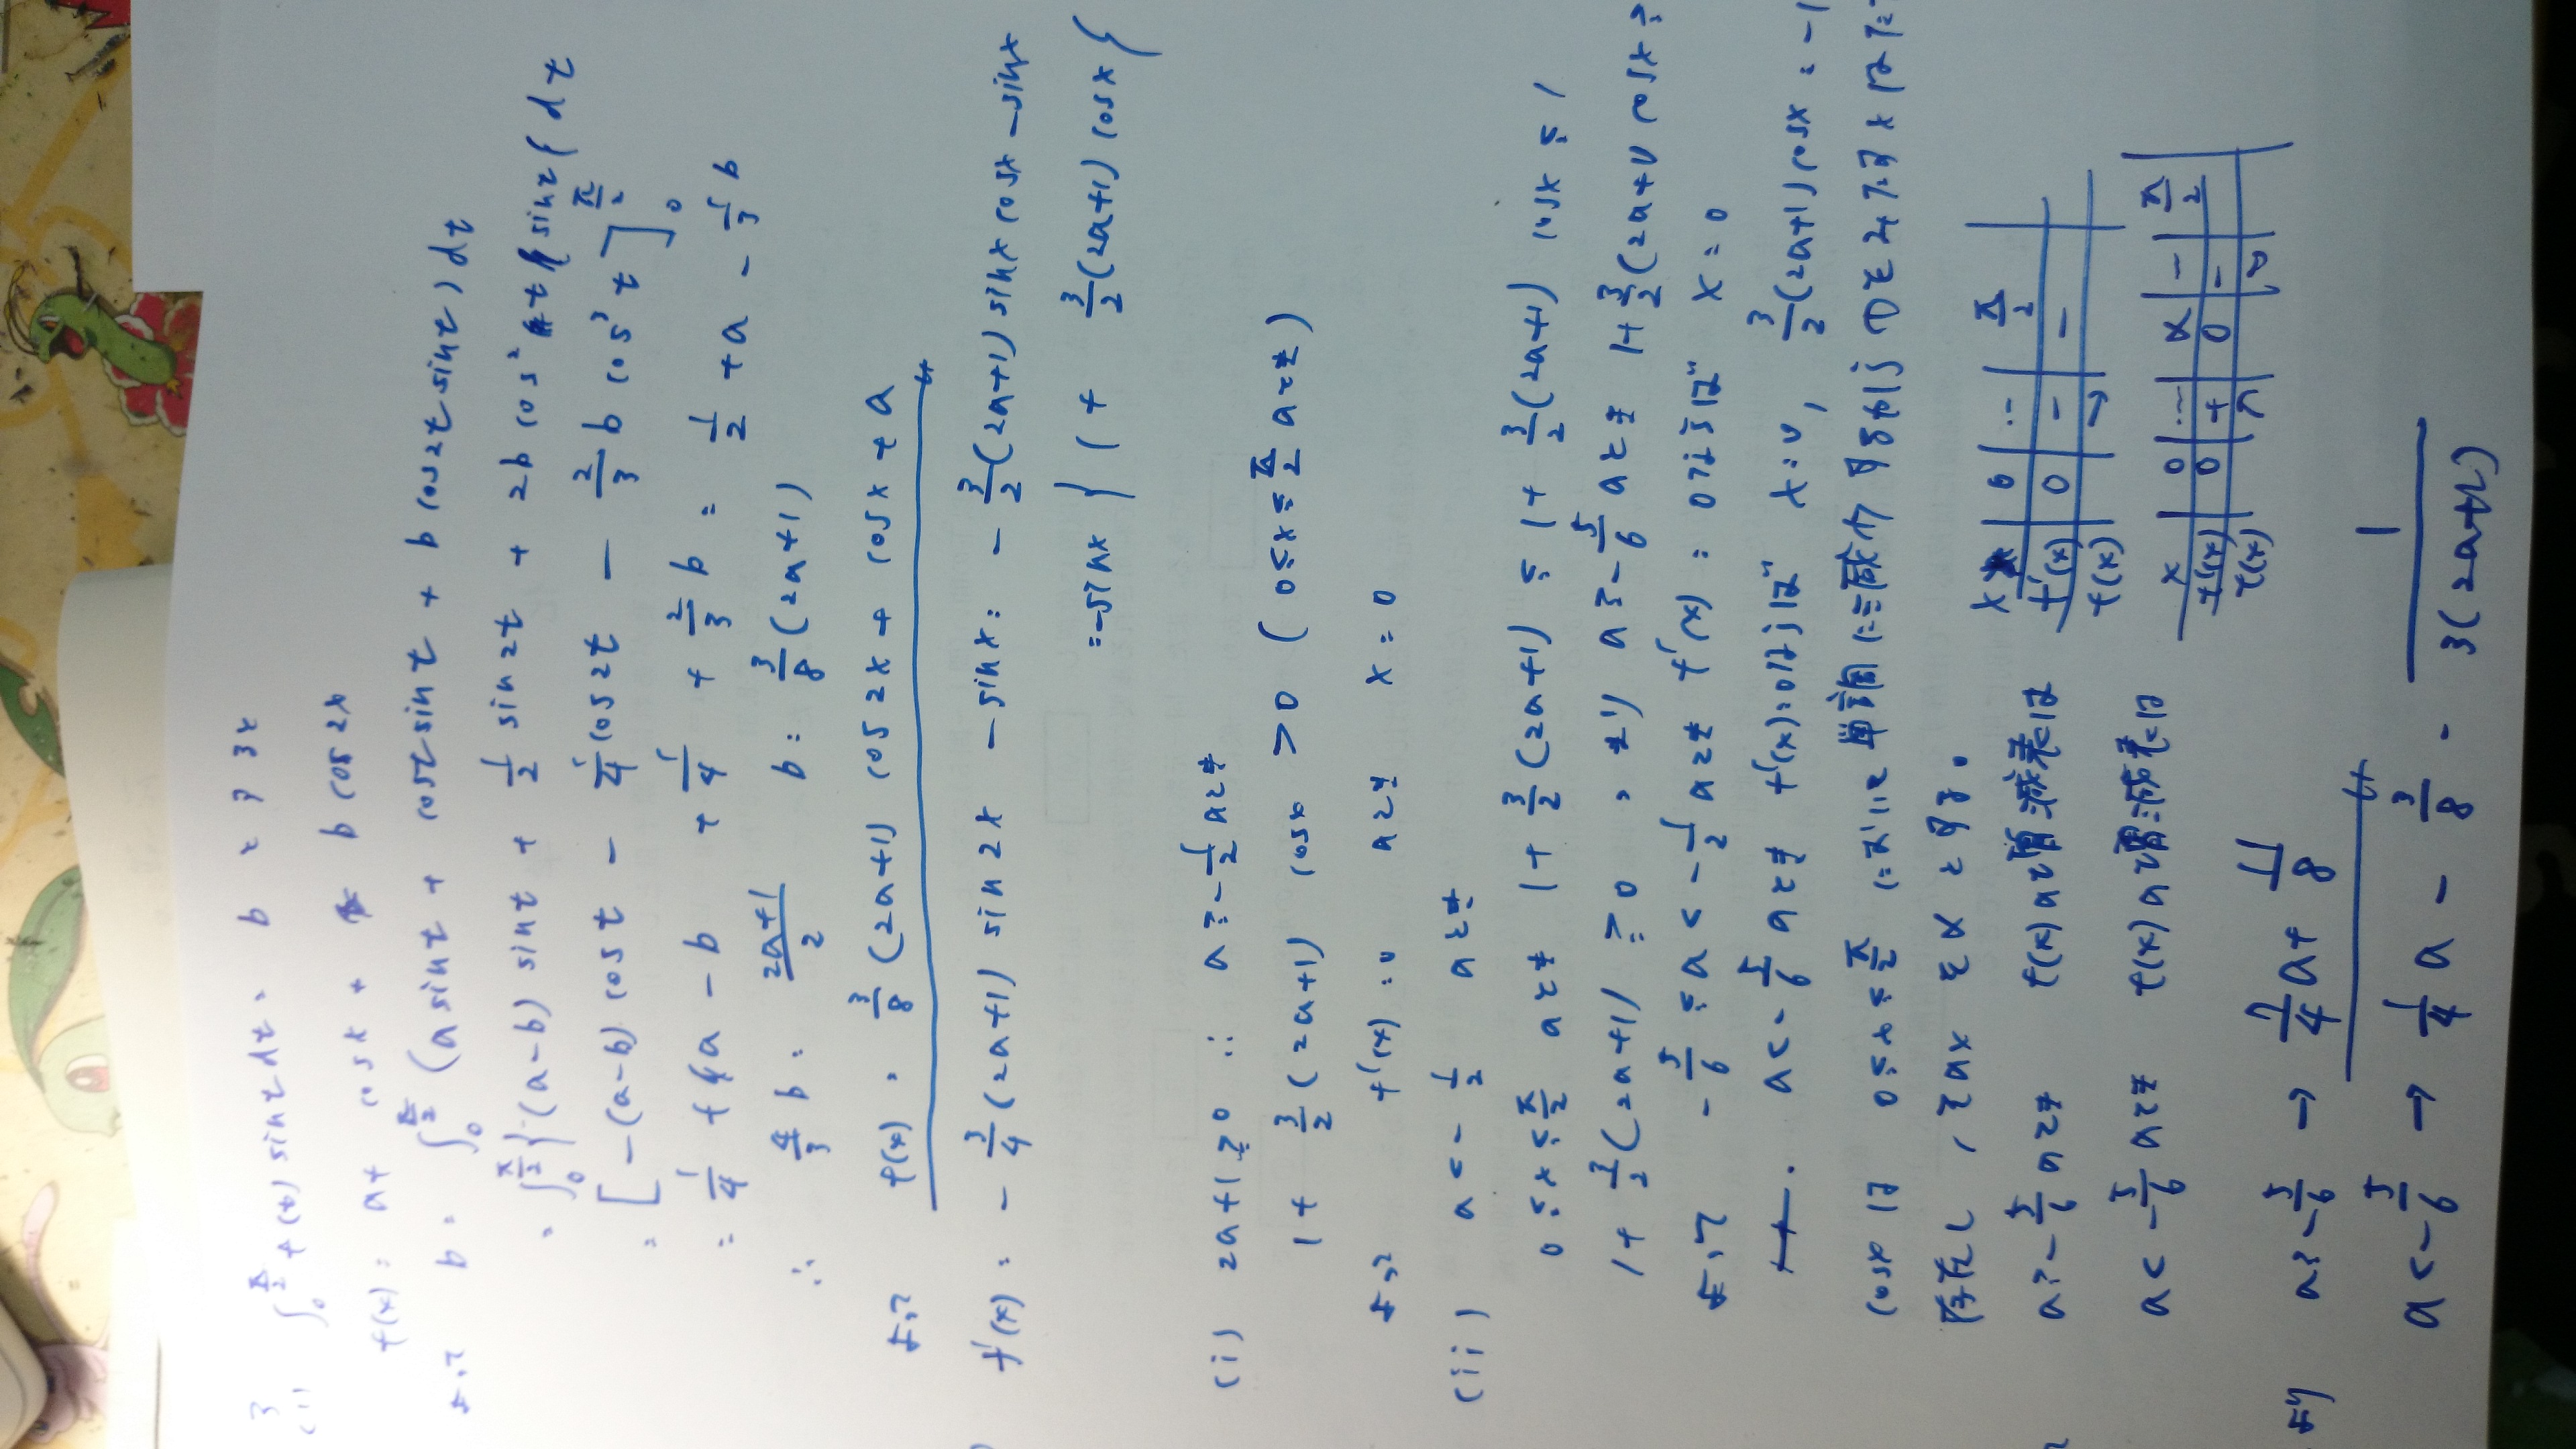 3
(1) ∫₀^{π/2} f(t) sint dt = b とすると
f(x) = a + cosx + b cos2x
よって b = ∫₀^{π/2} (a sint + cost sint + b cos2t sint) dt
= ∫₀^{π/2} {(a-b) sint + 1/2 sin2t + 2b cos²t sint} dt
= [-(a-b) cost - 1/4 cos2t - 2/3 b cos³t]₀^{π/2}
= 1/4 + a - b + 1/4 + 2/3 b = 1/2 + a - 1/3 b
∴ 4/3 b = (2a+1)/2 b = 3/8 (2a+1)
よって f(x) = 3/8 (2a+1) cos2x + cosx + a
f'(x) = -3/4 (2a+1) sin2x - sinx = -3/2 (2a+1) sinx cosx - sinx
= -sinx {1 + 3/2 (2a+1) cosx}
(i) 2a+1 ≧ 0 ∴ a ≧ -1/2 のとき
1 + 3/2 (2a+1) cosx > 0 (0 ≦ x ≦ π/2 のとき)
よって f'(x) = 0 のとき x = 0
(ii) a < -1/2 のとき
0 ≦ x ≦ π/2 のとき 1 + 3/2 (2a+1) ≦ 1 + 3/2 (2a+1) cosx ≦ 1
1 + 3/2 (2a+1) ≧ 0 、つまり a ≧ -5/6 のとき 1 + 3/2 (2a+1) cosx ≧
よって -5/6 ≦ a < -1/2 のとき f'(x) = 0 の解は x = 0
また、a < -5/6 のとき f'(x) = 0 の解は x = 0, 3/2 (2a+1) cosx = -1
cosx は 0 ≦ x ≦ π/2 において単調に減少
存在し、これを α とする。
a ≧ -5/6 のとき f(x) の増減表は
x 0 … π/2
f'(x) 0 - -
f(x) ↘
a < -5/6 のとき f(x) の増減表は
x 0 … α … π/2
f'(x) 0 + 0 - -
f(x) ↗ ↘
よって a ≧ -5/6 → 7/4 a + 11/8
a < -5/6 → 1/4 a - 3/8 - 1/(3(2a+1))